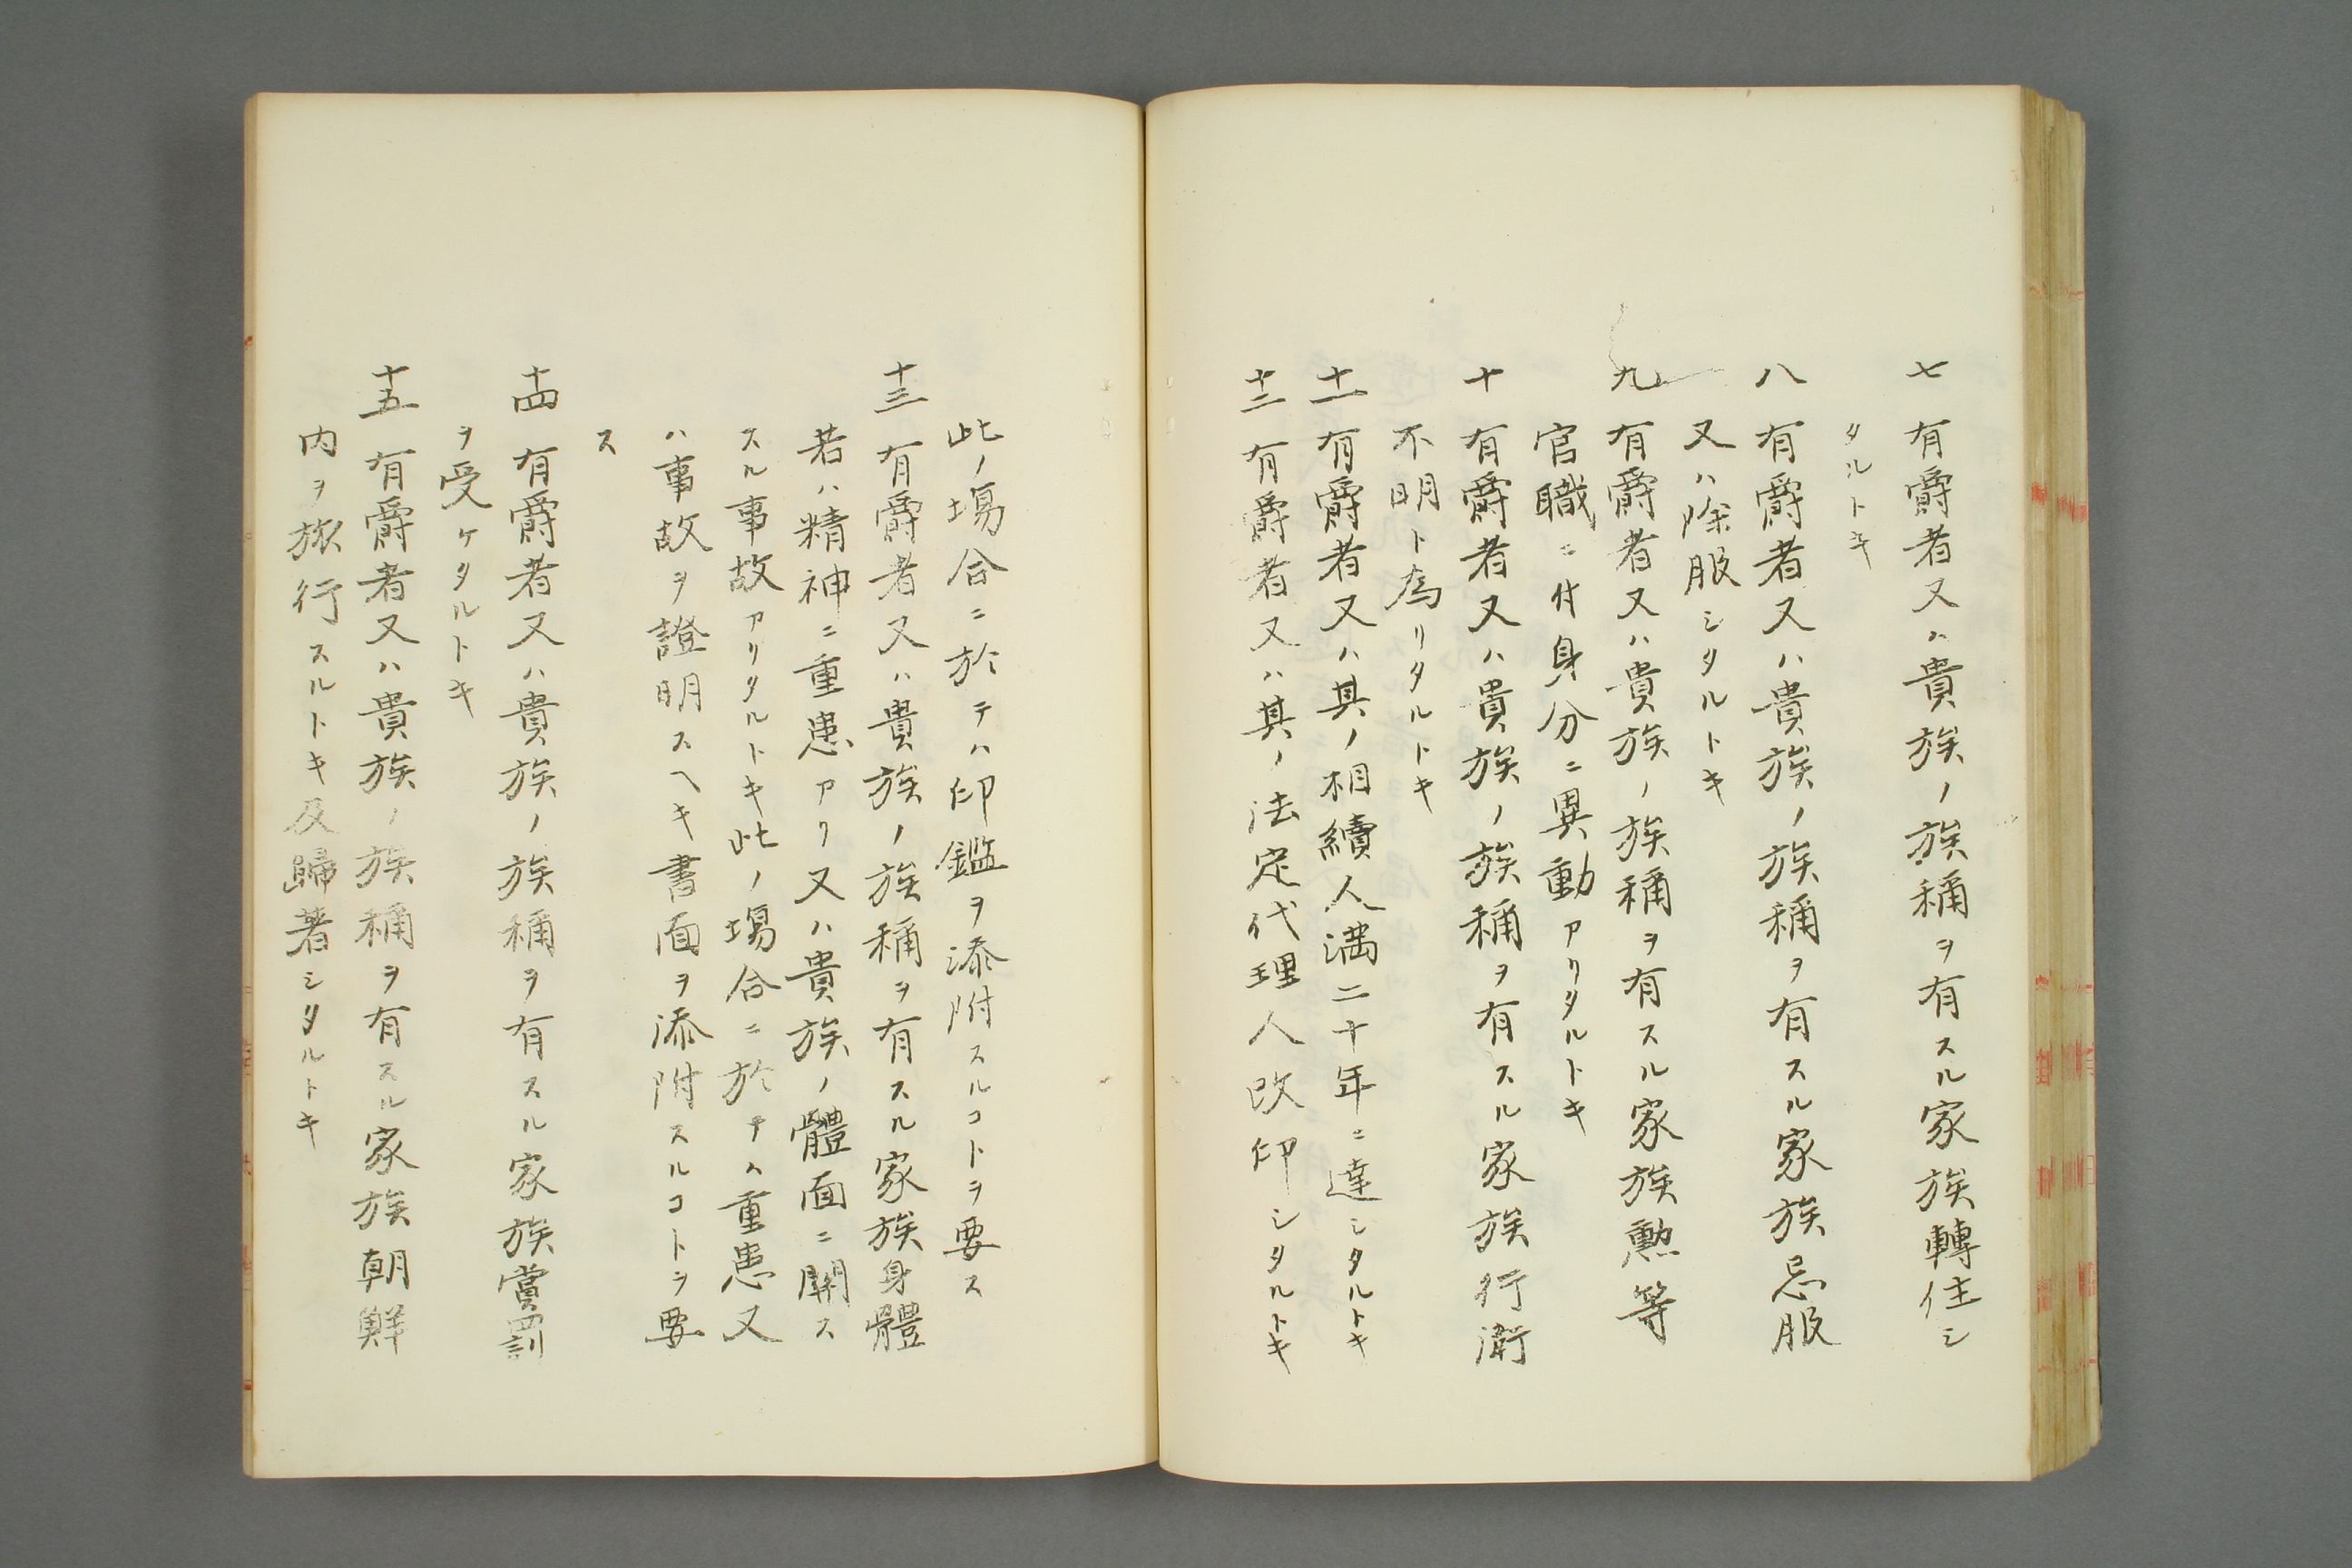 七 有爵者又ハ貴族ノ族稱ヲ有スル家族轉住シ
タルトキ
八 有爵者又ハ貴族ノ族稱ヲ有スル家族忌服
又ハ除服シタルトキ
九 有爵者又ハ貴族ノ族稱ヲ有スル家族勲等
官職ニ付身分ニ異動アリタルトキ
十 有爵者又ハ貴族ノ族稱ヲ有スル家族行衛
不明ト為リタルトキ
十一 有爵者又ハ其ノ相續人満二十年ニ達シタルトキ
十二 有爵者又ハ其ノ法定代理人改印シタルトキ
此ノ場合ニ於テハ印鑑ヲ添附スルコトヲ要ス
十三 有爵者又ハ貴族ノ族稱ヲ有スル家族身體
若ハ精神ニ重患アリ又ハ貴族ノ體面ニ關ス
スル事故アリタルトキ此ノ場合ニ於テハ重患又
ハ事故ヲ證明スヘキ書面ヲ添附スルコトヲ要
ス
十四 有爵者又ハ貴族ノ族稱ヲ有スル家族賞罰
ヲ受ケタルトキ
十五 有爵者又ハ貴族ノ族稱ヲ有スル家族朝鮮
内ヲ旅行スルトキ及歸著シタルトキ